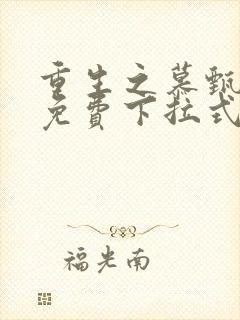 重生之慕甄
免费下拉式
福光南